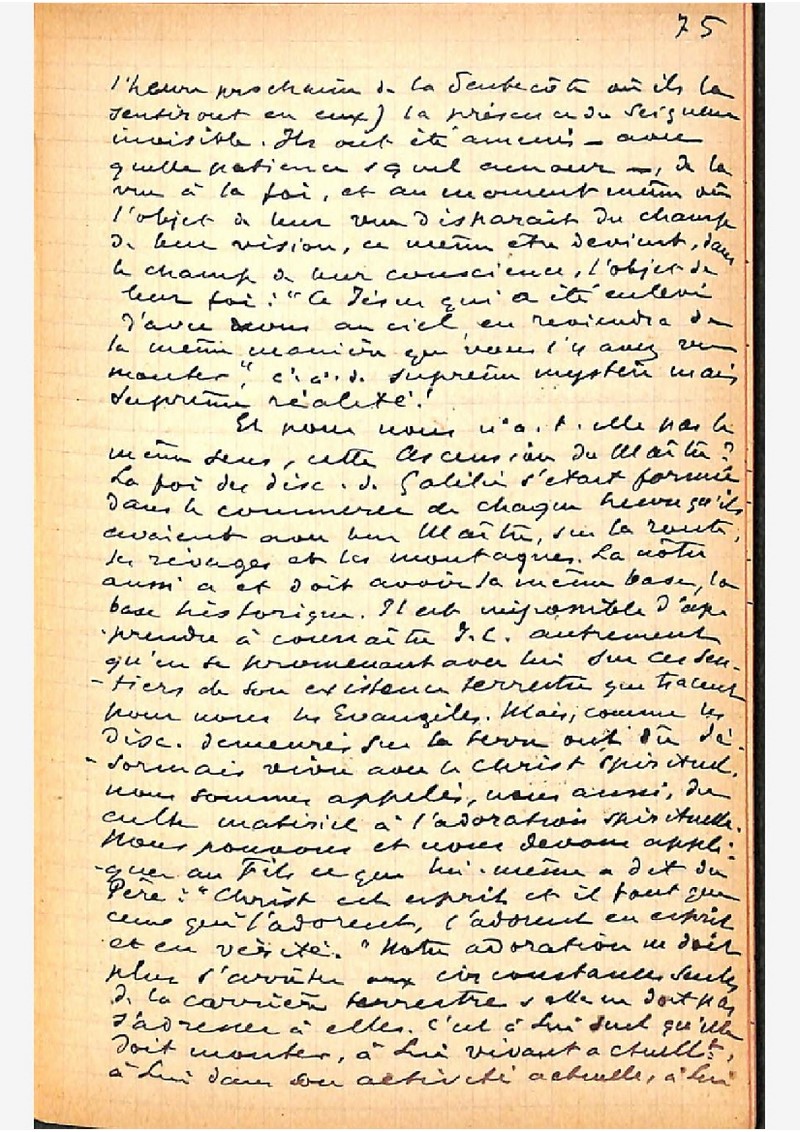 75
l'heure prochaine de la Pentecôte où ils la
sentiront en eux) la présence du Seigneur
invisible. Ils ont été amenés – avec
quelle patience, quel amour –, de la
vue à la foi, et au moment même où
l'objet de leur vue disparaît du champ
de leur vision, ce même être devient, dans
le champ de leur conscience, l'objet de
leur foi : "Ce Jésus qui a été enlevé
d'avec vous au ciel en reviendra de
la même manière que vous l'y avez vu
monter", c.à.d. suprême mystère mais
suprême réalité.
Et pour nous n'a-t-elle pas le
même sens, cette Ascension du Maître ?
La foi des disc. de Galilée s'était formée
dans le commerce de chaque heure qu'ils
avaient avec leur Maître, sur la route,
les rivages et les montagnes. La nôtre
aussi a et doit avoir la même base, la
base historique. Il est impossible d'ap-
prendre à connaître J.C. autrement
qu'en se promenant avec lui sur ces sen-
-tiers de son existence terrestre que tracent
pour nous les Evangiles. Mais, comme les
disc. demeurés sur la terre ont dû dé-
-sormais vivre avec le Christ spirituel,
nous sommes appelés, nous aussi, du
culte matériel à l'adoration spirituelle.
Nous pouvons et nous devons appli-
-quer au Fils ce que lui-même a dit du
Père : "Christ est esprit et il faut que
ceux qui l'adorent, l'adorent en esprit
et en vérité." Notre adoration ne doit
plus s'arrêter aux circonstances seules
de la carrière terrestre, elle ne doit pas
s'adresser à elles. C'est à Lui seul qu'elle
doit monter, à Lui vivant actuellt,
à Lui dans son activité actuelle, à Lui